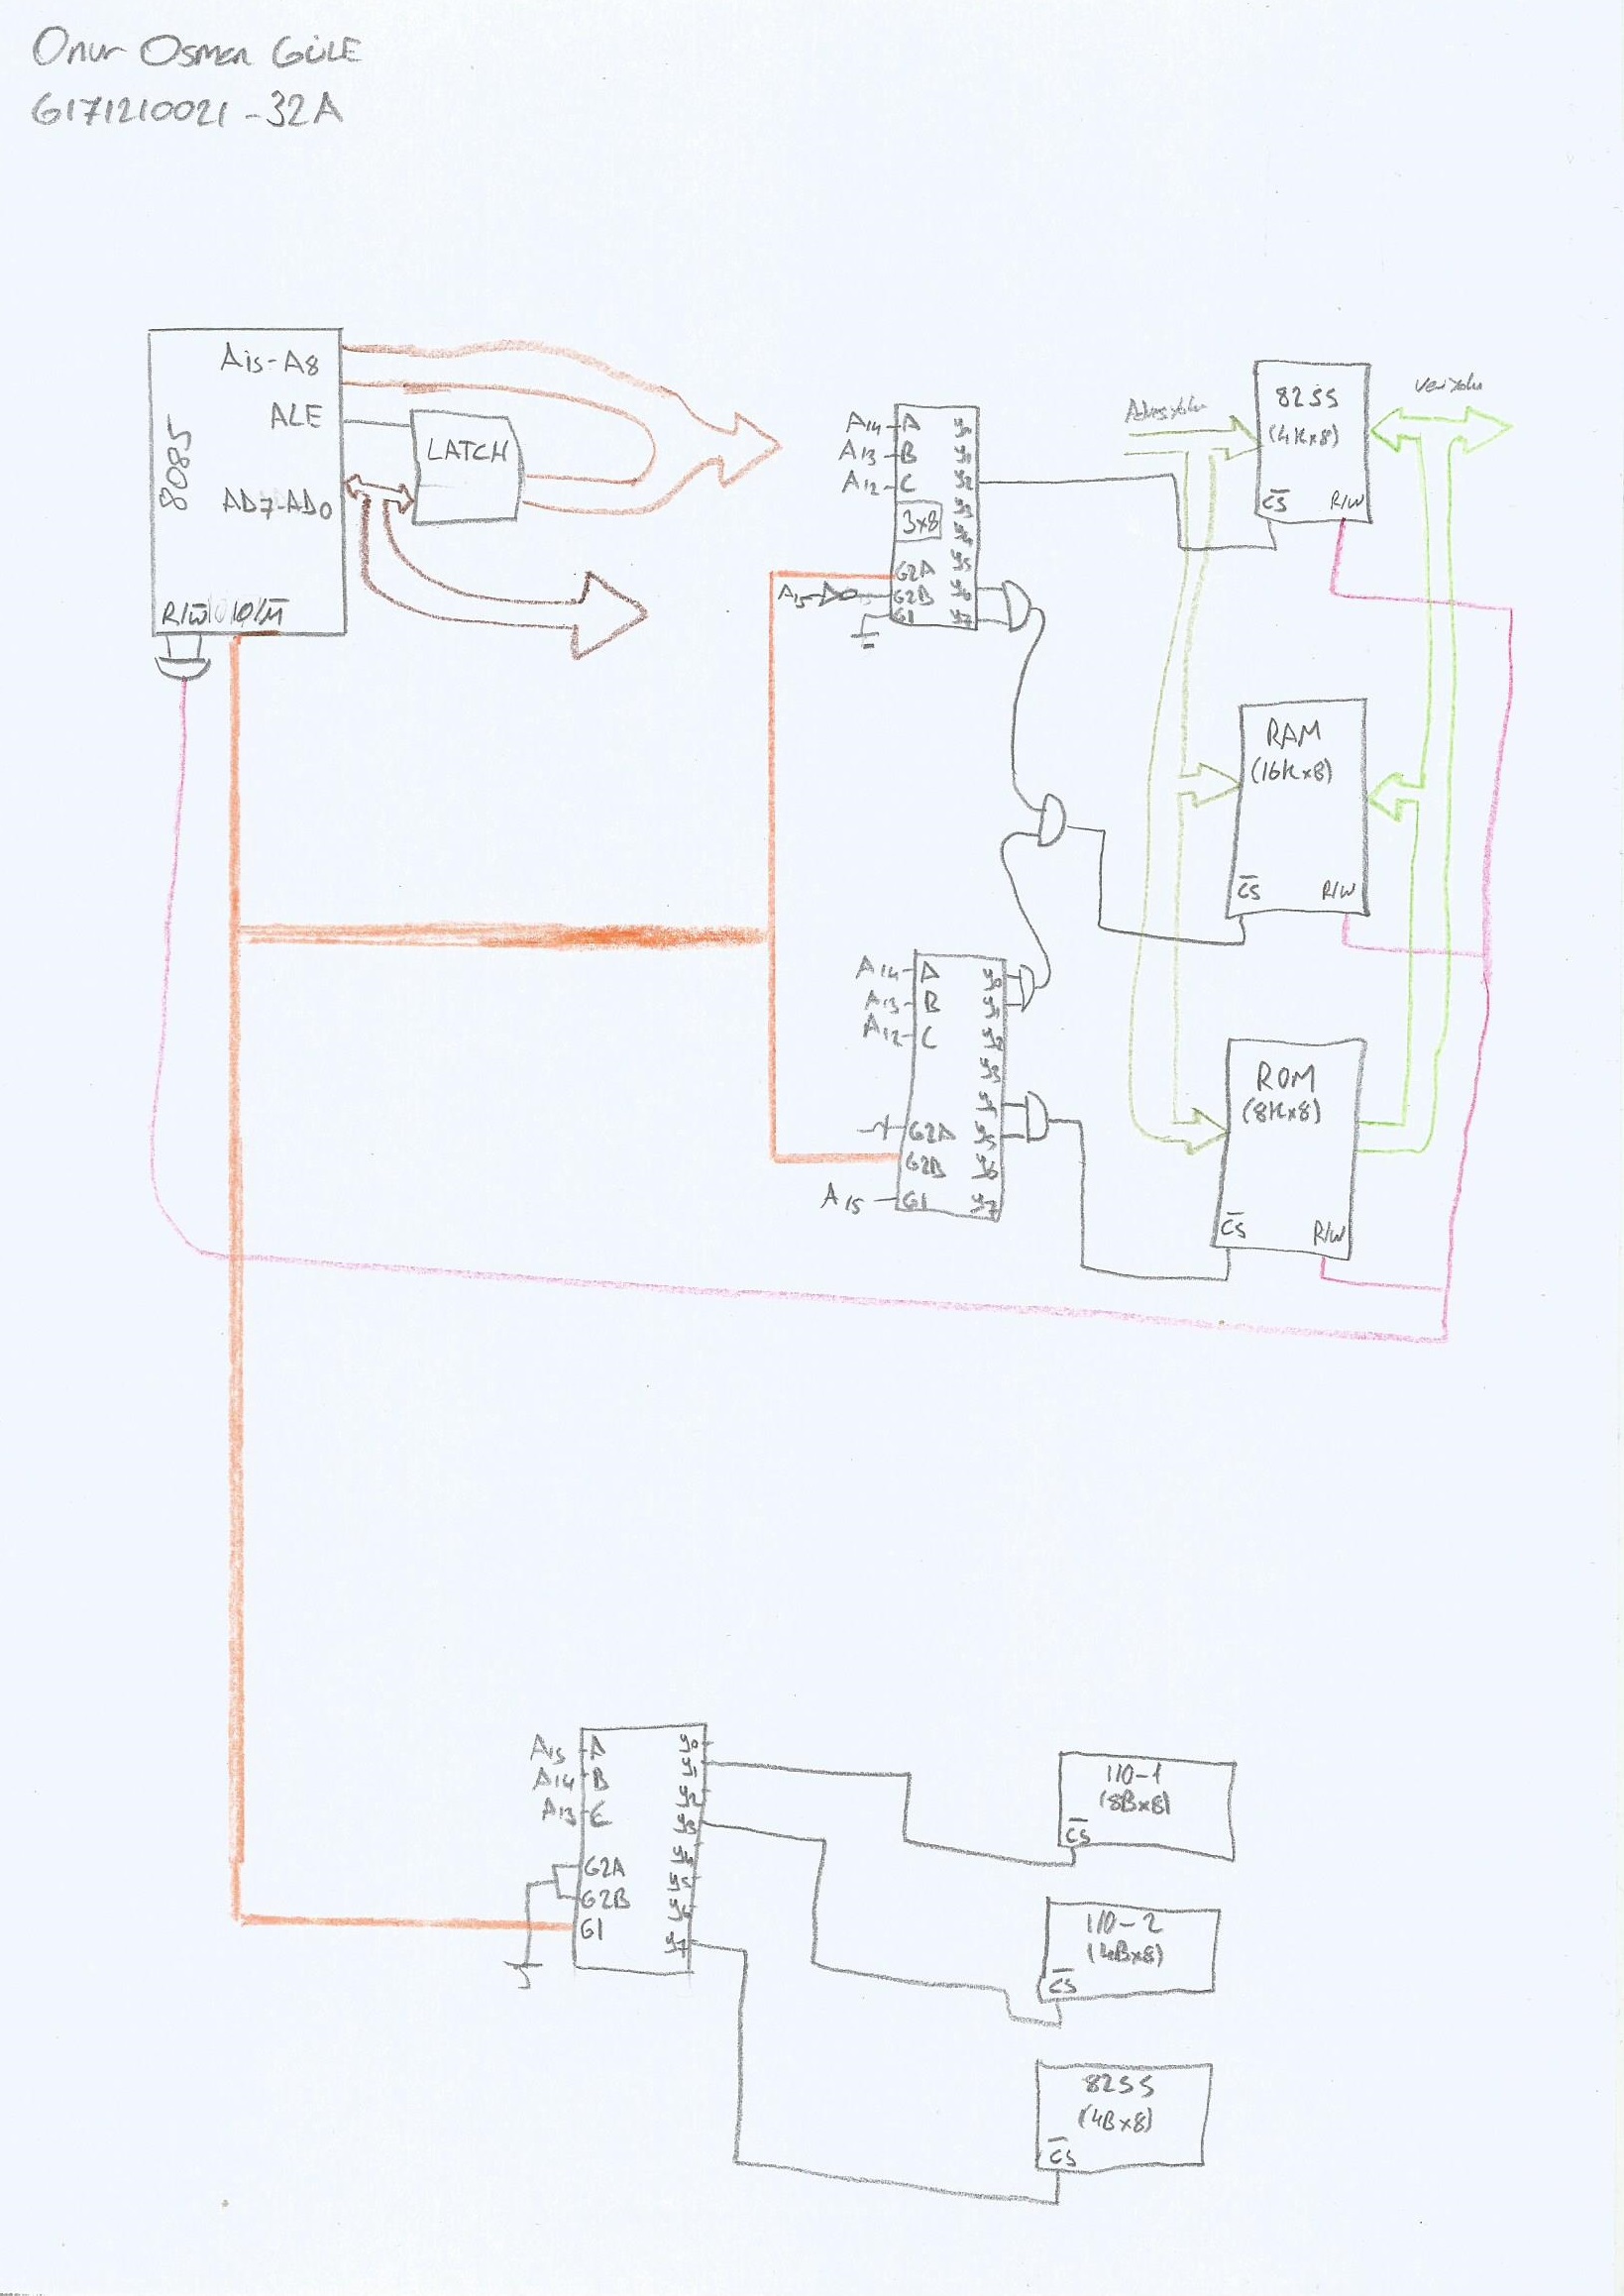 Onur Osman GÜLE
G171210021 - 32A
8085
A15-A8
ALE
AD7-AD0
R/W̅ IO/M̅
LATCH
A14 A
A13 B
A12 C
3x8
G2A
A15 G2B
G1
y0
y1
y2
y3
y4
y5
y6
y7
Adres yolu
veri yolu
8255
(4Kx8)
C̅S̅ R/W
RAM
(16Kx8)
C̅S̅ R/W
A14 A
A13 B
A12 C
G2A
G2B
A15 G1
y0
y1
y2
y3
y4
y5
y6
y7
ROM
(8Kx8)
C̅S̅ R/W
A15 A
A14 B
A13 C
G2A
G2B
G1
y0
y1
y2
y3
y4
y5
y6
y7
I/O-1
(8Bx8)
C̅S̅
I/O-2
(4Bx8)
C̅S̅
8255
(4Bx8)
C̅S̅